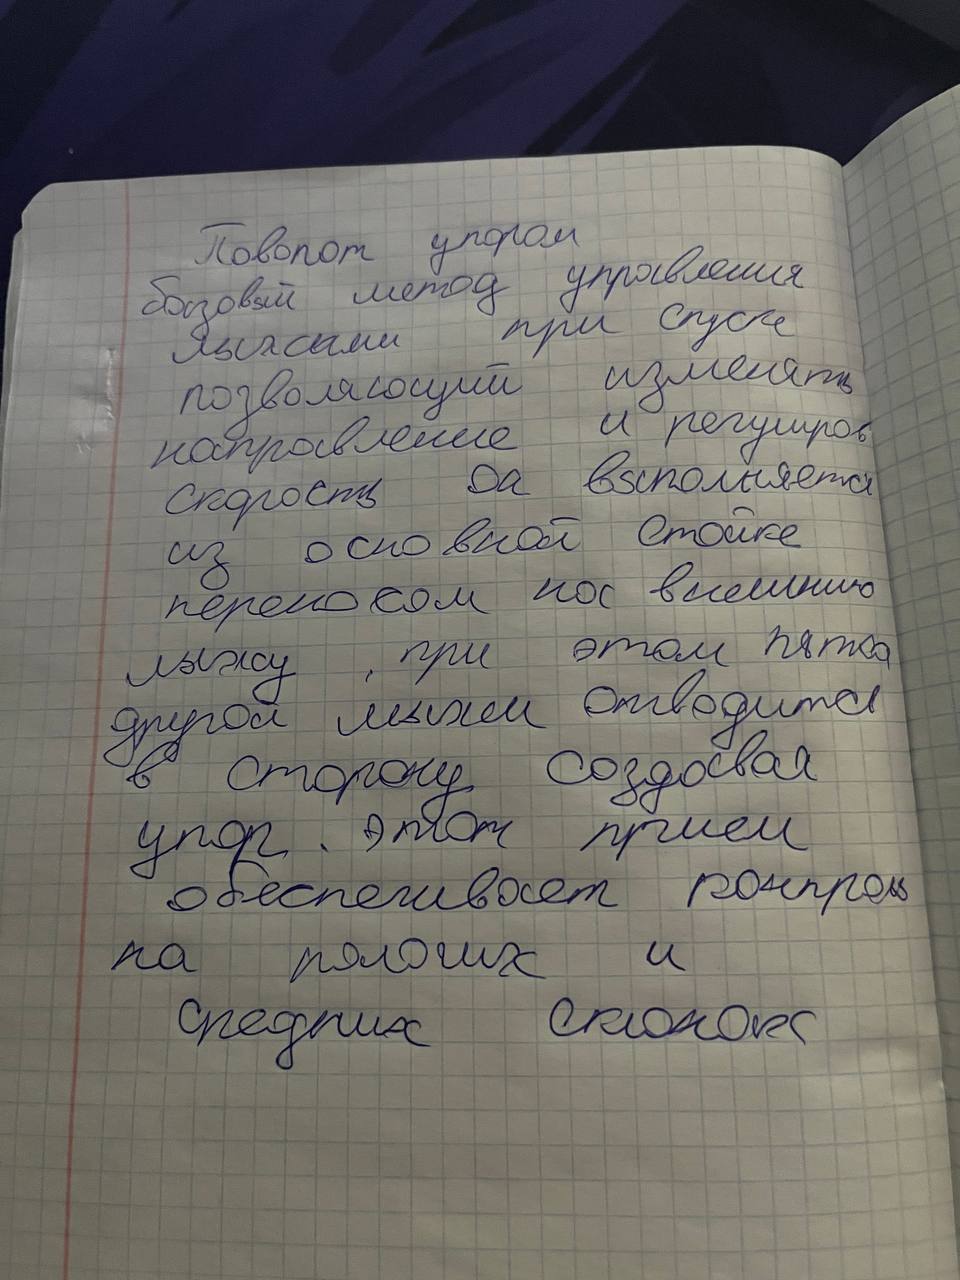 Поворот упором
базовый метод управления
лыжами при спуске
позволяющий изменять
направление и регулиров
скорость Он выполняется
из основной стойке
переносом нос внешнию
лыжу, при этом пятка
другой лыжи отводится
в сторону создовая
упор. Этот прием
обеспечивает контроль
на пологих и
средних склонах